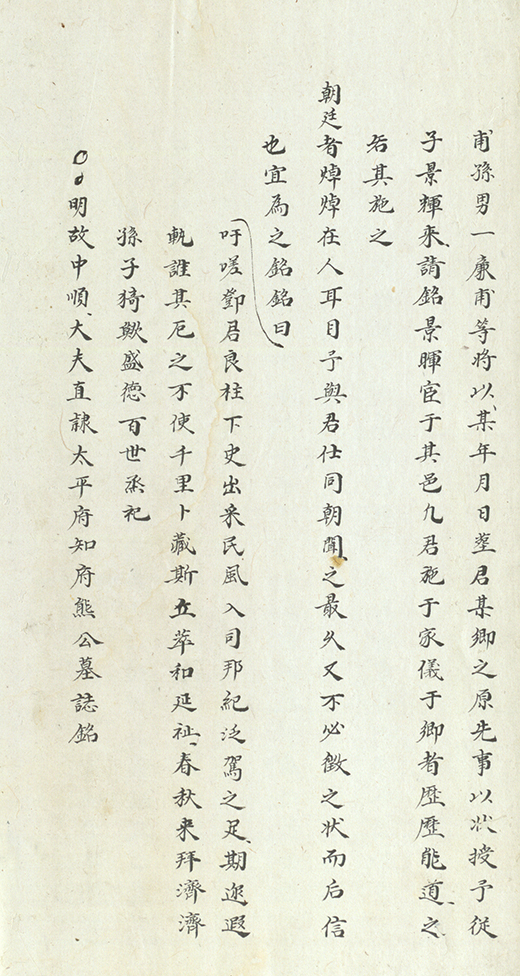 甫孫男一廉甫等將以某年月日塟君某鄉之原先事以狀授予從
子景輝来請銘景暉宦于其邑九君施于家儀于鄉者歷歷能道之
若其施之
朝廷者焯焯在人耳目予與君仕同朝聞之最久又不必徵之状而后信
也宜為之銘銘曰
吁嗟鄧君良柱下史出采民風入司邦紀泛駕之足期迩遐
軌誰其厄之不使千里卜藏斯丘萃和延祉春秋来拜濟濟
孫子猗歟盛德百世烝祀
明故中順大夫直隸太平府知府熊公墓誌銘